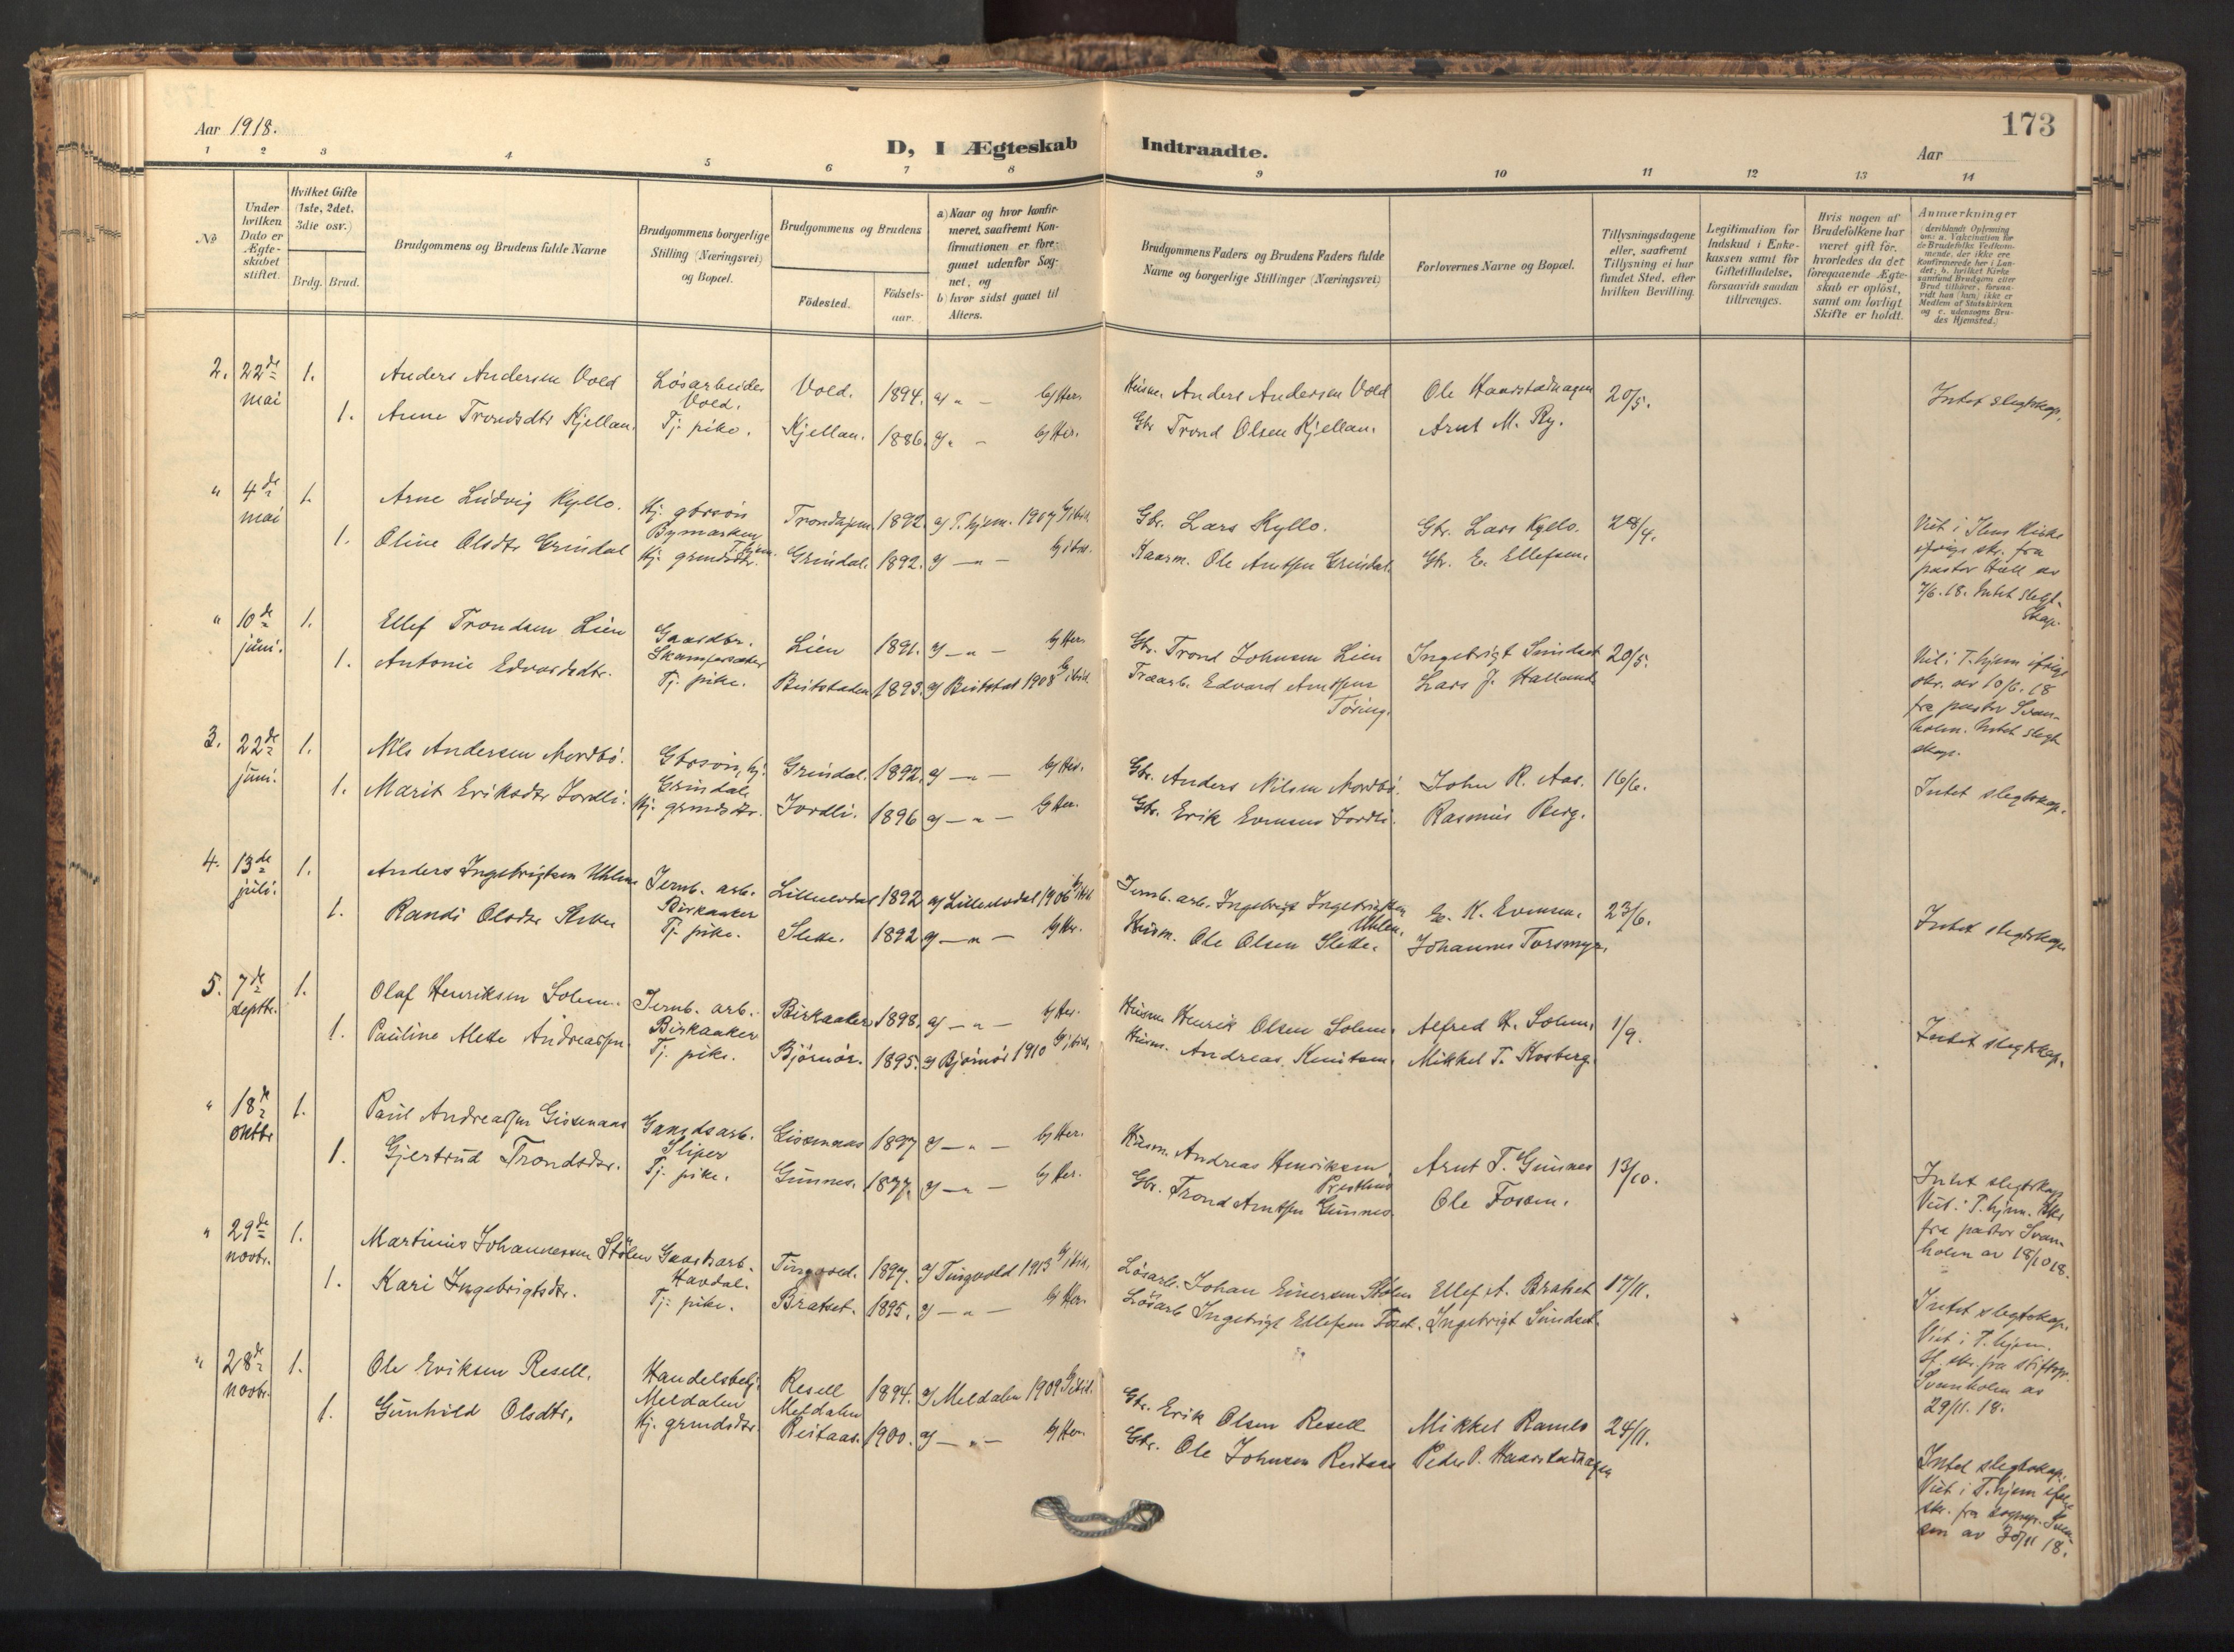 Aar 1918.
D, I Ægteskab Indtraadte.
173
Aar
1 2 3 4 5 6 7 8 9 10 11 12 13 14
No
Under hvilken Dato er Ægteskabet stiftet.
Hvilket Gifte (1ste, 2det, 3die osv.)
Brdg. Brud.
Brudgommens og Brudens fulde Navne
Brudgommens borgerlige Stilling (Næringsvei) og Bopæl.
Brudgommens og Brudens
Födested.
Födselsaar.
a) Naar og hvor konfirmeret, saafremt Konfirmationen er foregaaet udenfor Sognet, og
b) hvor sidst gaaet til Alters.
Brudgommens Faders og Brudens Faders fulde Navne og borgerlige Stillinger (Næringsvei)
Forlovernes Navne og Bopæl.
Tillysningsdagene eller, saafremt Tillysning ei har fundet Sted, efter hvilken Bevilling.
Legitimation for Indskud i Enkekassen samt for Giftetilladelse, forsaavidt saadan tiltrænges.
Hvis nogen af Brudefolkene har været gift før, hvorledes da det foregaaende Ægteskab er oplöst, samt om lovligt Skifte er holdt.
Anmerkninger
2. 22de mai 1. Anders Andersen Vold Løsarbeider Vold. Vold. 1894. a) " — b) Her. Husm. Anders Andersen Vold Ole Haarstadhagen 20/5. Intet slegtskap.
1. Anne Trondsdtr Kjellan. Tj. pike. Kjellan. 1886. a) " — b) Her. Gbr Trond Olsen Kjellan. Arnt M. Ry.
" 4de mai 1. Arne Ludvig Kyllo. Hj. gbrsøn Bymarken T.hjem. Trondhjem 1892 a) T.hjem. 1907 b) ibid. Gbr. Lars Kyllo. Gbr. Lars Kyllo. 28/4. Viet i Ilens Kirke ifølge skr. fra pastor Hall av 7/6.18. Intet slegtskap.
1. Oline Olsdtr Grindal Hj. grmdsdtr. Grindal. 1892. a) — " — b) ibid. Kaarm. Ole Arntsen Grindal. Gbr. E. Ellefsen.
" 10de juni. 1. Ellef Trondsen Lien Gaardbr. Skamfersæter Lien 1891. a) — " — b) Her. Gbr. Trond Johnsen Lien Ingebrigt Sundset 20/5. Viet i T.hjem ifølge skr. av 10/6.18 fra pastor Svanholm. Intet slegtskap.
1. Antonie Edvardsdtr. Tj. pike. Beitstaden 1893. a) Beitstad 1908 b) ibid. Træarb. Edvard Arntsen Tøring. Lars J. Halland
3. 22de juni. 1. Nils Andersen Nordbø. Gbrsøn, hj. Grindal Grindal. 1892. a) — " — b) Her. Gbr. Anders Nilsen Nordbø. John R. Aas. 16/6. Intet slegtskap.
1. Marit Eriksdtr Jordli. Hj. grmdsdtr. Jordli. 1896 a) — " — b) Her. Gbr. Erik Evensen Jordli. Rasmus Berg.
4. 13de juli. 1. Anders Ingebrigtsen Uhlen Jernb. arb. Birkaaker Lilleelvdal 1892 a) Lilleelvdal 1906 b) ibid. Jernb. arb. Ingebrigt Ingebrigtsen Uhlen. E. K. Evensen. 23/6. Intet slegtskap
1. Randi Olsdtr Slette Tj. pike. Slette. 1892 a) — " — b) Her. Husm. Ole Olsen Slette. Johannes Torsmyr.
5. 7de septbr. 1. Olaf Henriksen Solem. Jernb. arb. Birkaaker Birkaaker 1898. a) — " — b) Her. Husm Henrik Olsen Solem. Alfred H. Solem. 1/9. Intet slegtskap.
1. Pauline Mette Andreassen. Tj. pike. Bjørnør. 1895. a) Bjørnør 1910 b) ibid. Husm. Andreas Knutsen. Mikkel T. Kosberg.
" 18de oktbr 1. Paul Andreassen Gissenaas Gaardsarb. Sliper Gissenaas 1897 a) — " — b) Her. Husm. Andreas Henriksen Presthus Arnt T. Gunnes 13/10. Intet slegtskap Viet i T.hjem. fra pastor Svanholm av 18/10 18.
1. Gjertrud Trondsdtr. Tj. pike. Gunnes. 1897. a) — " — b) Her. Gbr. Trond Arntsen Gunnes. Ole Fossem.
" 29de novbr. 1. Martinus Johannessen Stølen Gaardsarb. Havdal. Tingvold. 1897. a) Tingvold 1913 b) ibid. Løsarb. Johan Einersen Stølen Ellef A. Bratset 17/11. Intet slegtskap. Viet i T.hjem. If. skr. fra stiftspr. Svanholm av 29/11.18.
1. Kari Ingebrigtsdtr. Tj. pike. Bratset. 1895. a) — " — b) Her. Løsarb Ingebrigt Ellefsen Foset. Ingebrigt Sundset.
" 28de novbr. 1. Ole Eriksen Resell. Handelsbetj. Meldalen Resell Meldalen 1894. a) Meldalen 1909 b) ibid. Gbr. Erik Olsen Resell Mikkel Ramlo 24/11. Intet slegtskap. Viet i T.hjem ifølge skr. fra sognepr. av 30/11 18.
1. Gunhild Olsdtr. Hj. grmdsdtr. Reitaas. 1900. a) — " — b) Her. Gbr. Ole Johnsen Reitaas Peder P. Haarstadhagen